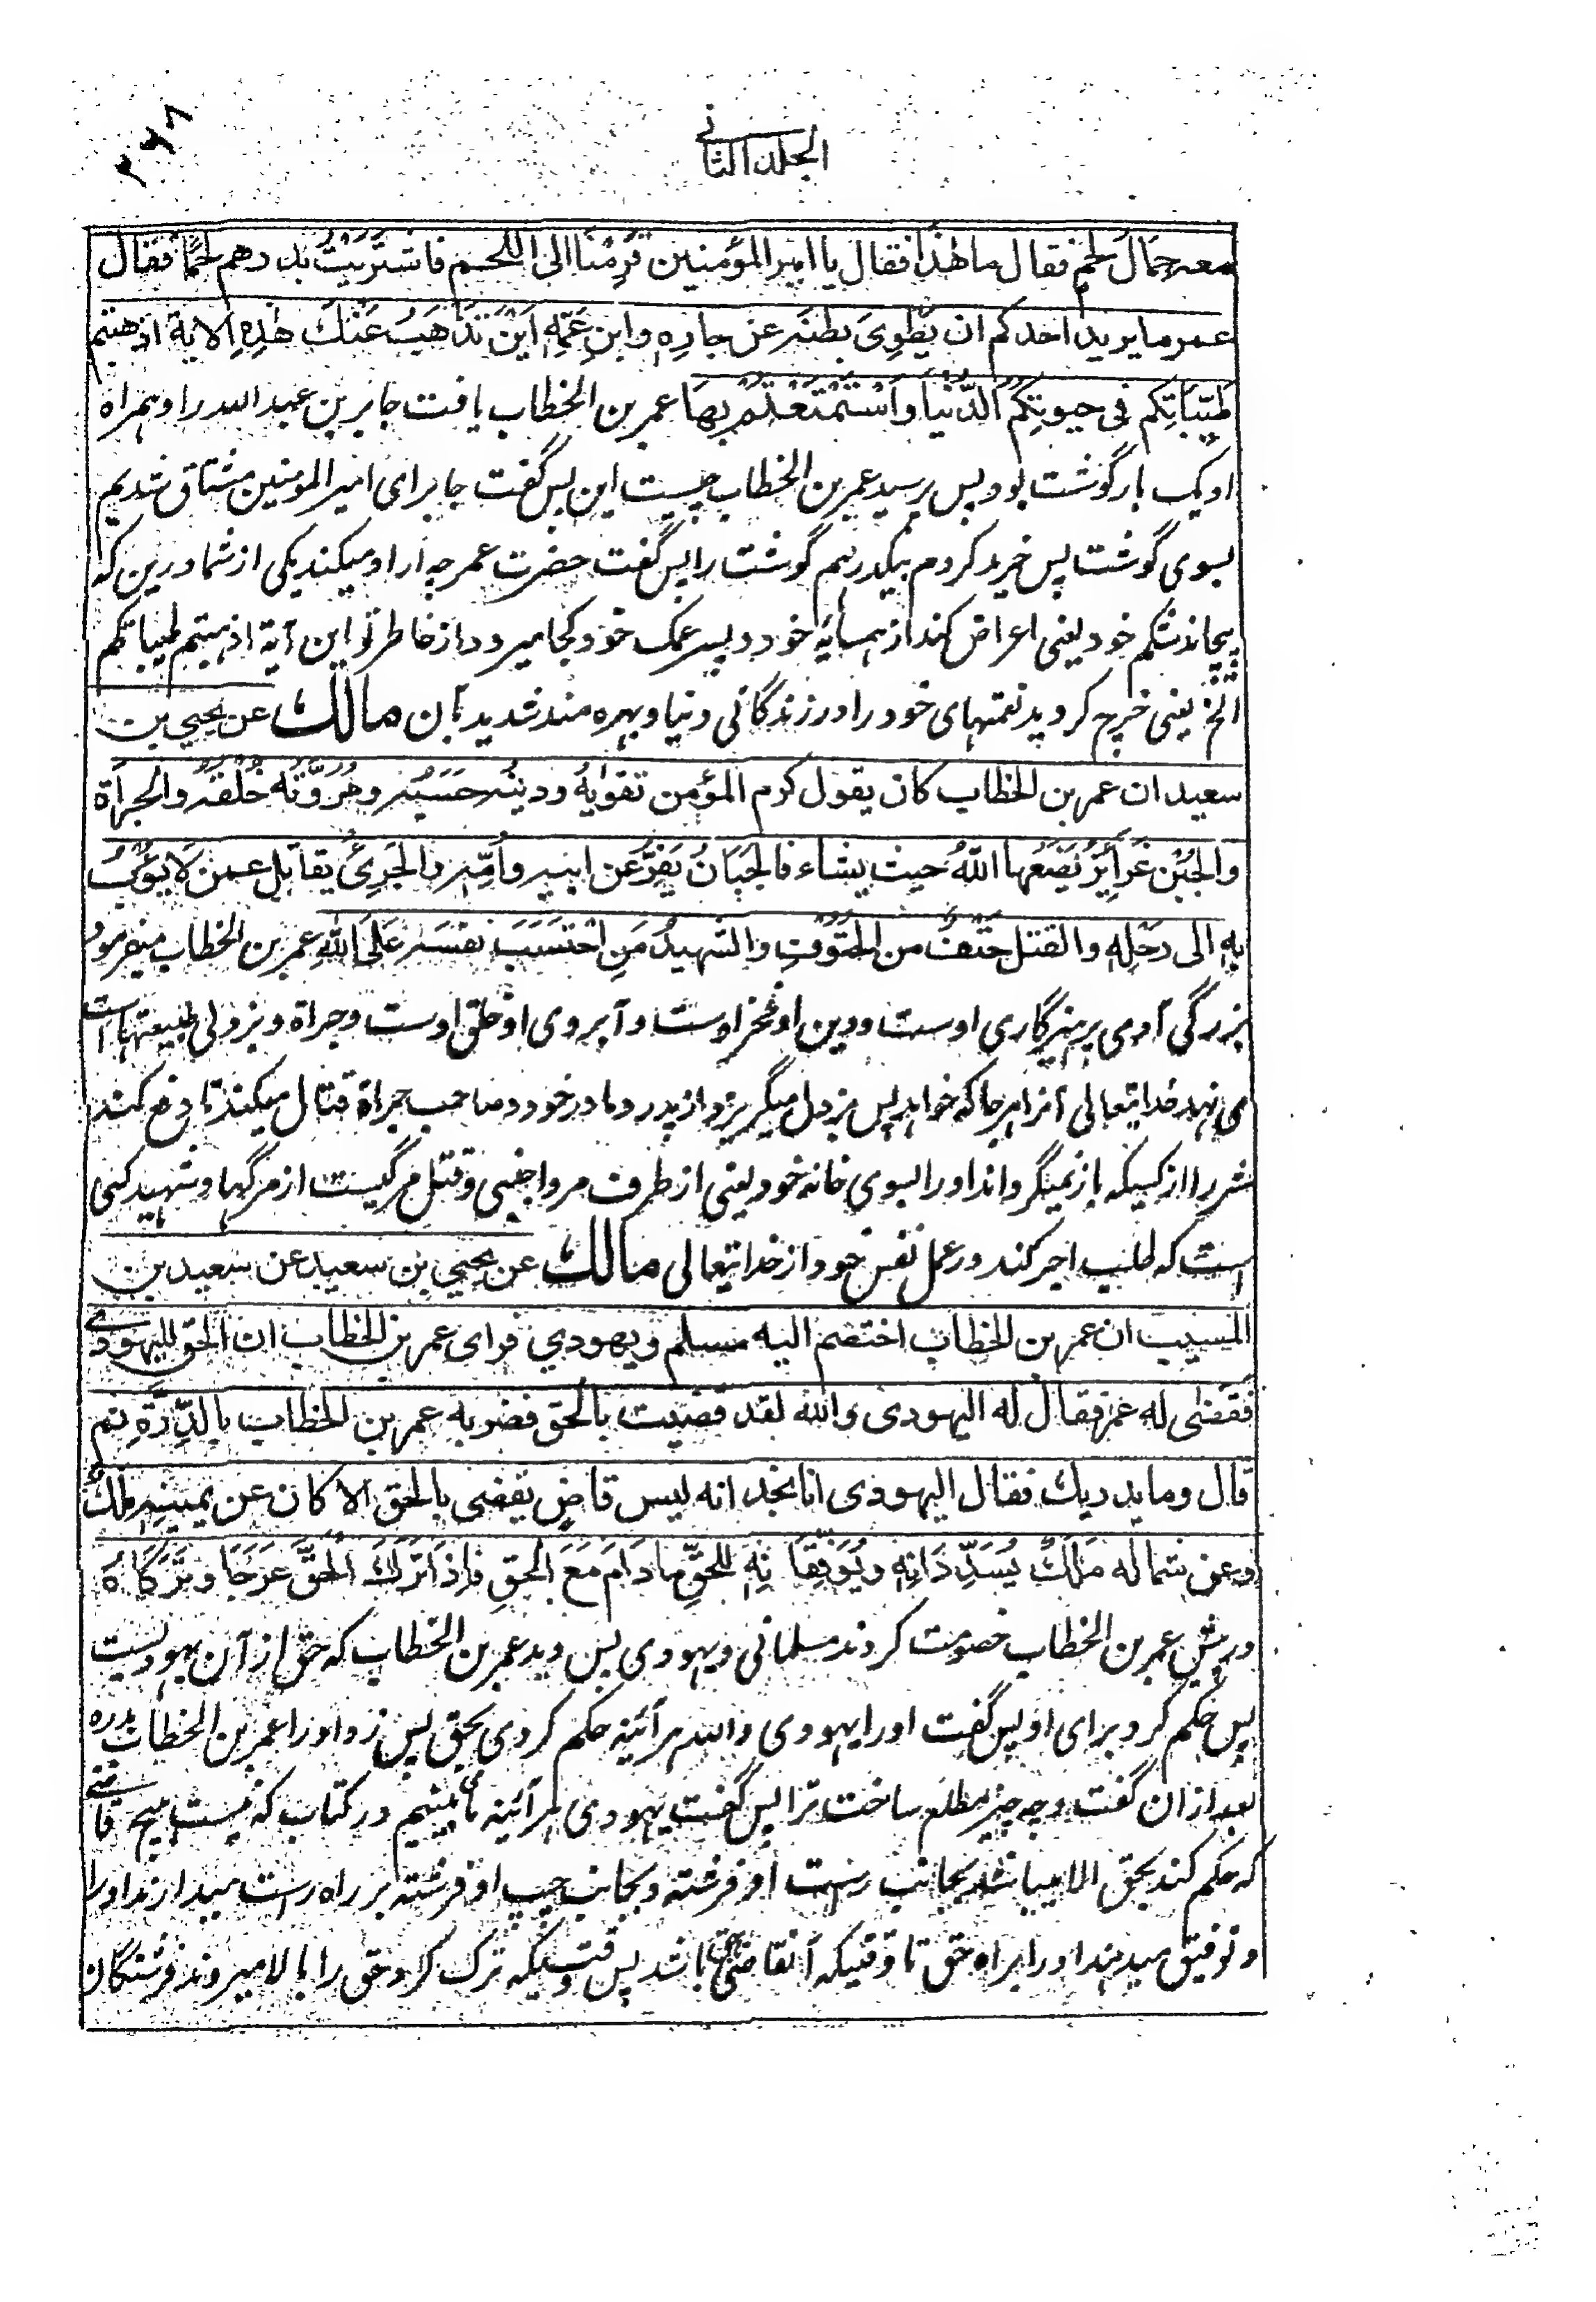 الجلد الثاني
۳۶۸
معه حِمَالُ لَحْمٍ فقال ما هٰذا فقال يا امير المؤمنين قَرِمْنَا الى اللحم فاشتَرَيْتُ بدرهم لَحْمًا فقال
عمر ما يريد احدكم ان يَّطْوِىَ بطنَه عن جارِهٖ وابنِ عَمِّهٖ اَيْنَ تَذْهَبُ عَنْكَ هٰذِهِ الاٰية اذهبتم
طَيِّبَاتِكم فى حيوتِكُمُ الدُّنْيَا وَاسْتَمْتَعْتُمْ بِهَا عمر بن الخطاب یافت جابر بن عبد الله را و همراه
او یک بار گوشت بود پس پرسید عمر بن الخطاب چیست این پس گفت جابر ای امیر المومنین مشتاق شدیم
بسوی گوشت پس خرید کردم بیکدرهم گوشت را پس گفت حضرت عمر چه اراده میکند یکی از شما درین که
بپیچاند شکم خود یعنی اعراض کند از همسایهٔ خود و پسر عمک خود کجا میرود از خاطر تو این آیة اذهبتم طیباتکم
الخ یعنی خرچ کردید نعمتهای خود را در زندگانی دنیا و بهره مند شدید بآن مالك عن يحيى بن
سعيد ان عمر بن الخطاب كان يقول كرم المؤمن تقوٰيهُ ودينُه حَسَبُه ومُرُوَّتُهُ خُلُقُهُ والجراَة
والجُبْن غَرَائِزُ يَضَعُها اللّٰهُ حيث يشاء فالجَبَانُ يَفِرُّ عن ابيه واُمِّه والجَرِىُ يقاتل عمن لَا يَؤُبُ
بِهٖ الى رَحْلِهٖ والقتل حَتْفٌ من الحُتُوْفِ والشهيدُ مَنِ احْتَسَبَ نَفْسَه عَلَى اللّٰهِ عمر بن الخطاب میفرمود
بزرگی آدمی پرهیزگاری اوست ودین او فخر اوست و آبروی او خلق اوست وجراة وبزدلی طبیعتهاست
می نهد خدایتعالی آنرا هر جا که خواهد پس بزدل میگریزد از پدر و مادر خود و صاحب جراة قتال میکند تا دفع کند
شر را از کسیکه باز نمیگرداند او را بسوی خانه خود یعنی از طرف مرد اجنبی وقتل مرگیست از مرگها وشهید کسی
است که طلب اجر کند در عمل نفس خود از خدایتعالی مالك عن يحيى بن سعيد عن سعيد بن
المسيب ان عمر بن الخطاب اختصم اليه مسلم ويهودي فراى عمر بن الخطاب ان الحق لليهودى
فَقَضٰى له عمر فقال له اليهودى والله لقد قضيت بالحق فضربه عمر بن الخطاب بالدِّرَّةِ ثم
قال وما يدريك فقال اليهودى انا نجد انه ليس قاضٍ يقضى بالحق الا كان عن يمينِه مَلَكٌ
وعن شماله مَلَكٌ يُسَدِّدَانِهٖ ويُوَفِّقَانِهٖ للحقِّ مادَامَ مَعَ الحقِ فاِذَا تَرَكَ الحَقَّ عَرَجَا وتَرَكَاهُ
در پیش عمر بن الخطاب خصومت کردند مسلمانی ویهودی پس دید عمر بن الخطاب که حق از آن یهودیست
پس حکم کرد برای او پس گفت او را یهودی والله هرآئینه حکم کردی بحق پس زد او را عمر بن الخطاب بدره
بعد ازان گفت وچه چیز مطلع ساخت ترا پس گفت یهودی هرآئینه مایابیم در کتاب که نیست هیچ قاضی
که حکم کند بحق الا میباشد بجانب راست او فرشته وبجانب چپ او فرشته بر راه راست میدارند او را
وتوفیق میدهند او را براه حق تا وقتیکه آنقاضی بحق باشد پس وقتیکه ترک کرد حق را بالا میروند فرشتگان